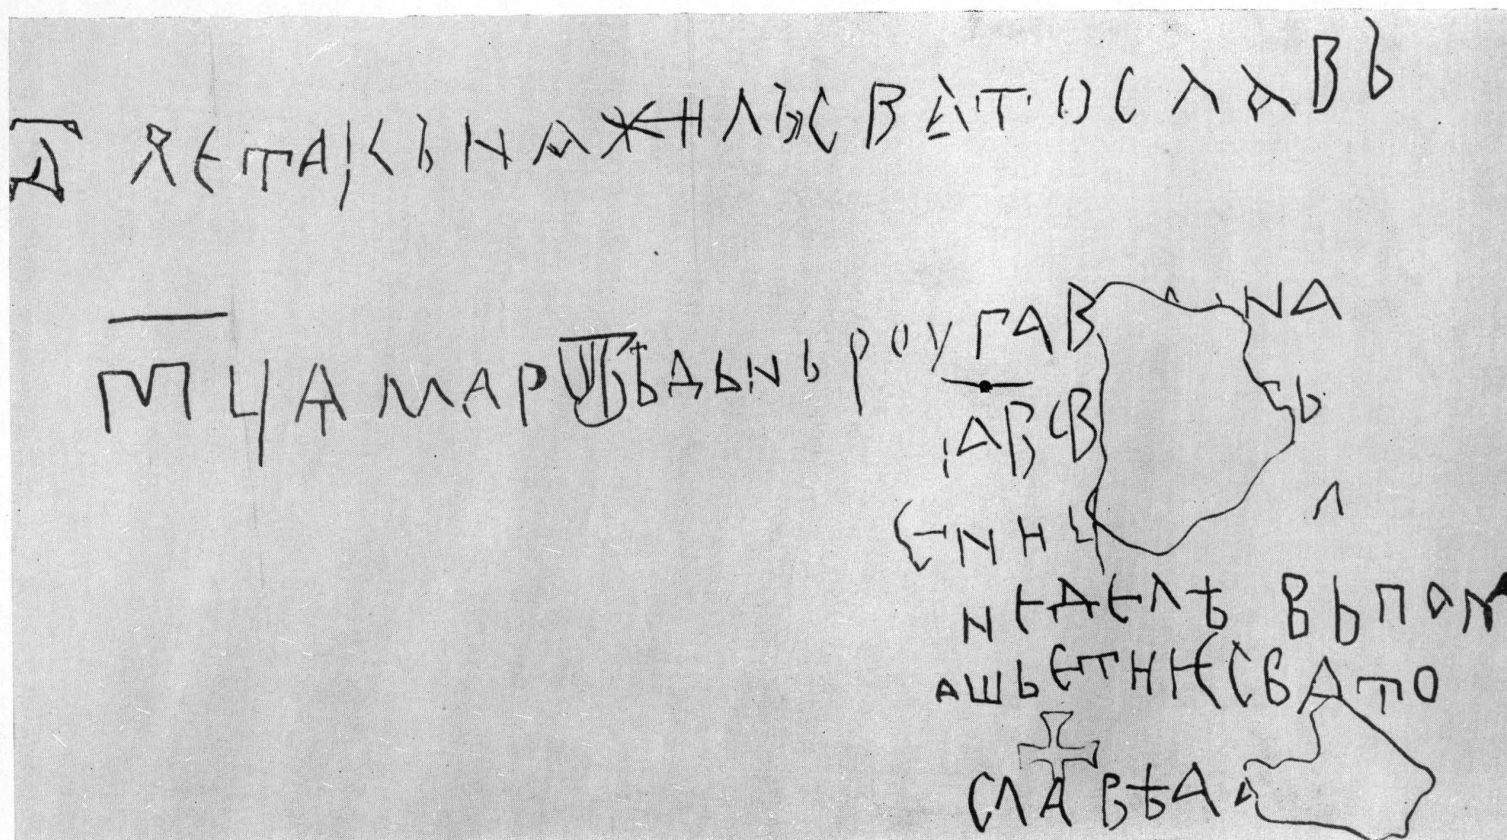 Д҃ ѦЕТАКЬНѦЖИЛЬСВѦТОСЛАВЬ
М҃ЦАМАРТВЪДЬНЬРОУГАВ НА
АВСВ Ь
ЕНИ Л
НЕДЕЛѢ ВЬПАМ
АШЬЕТНИЕСВАТО
СЛАВѢА